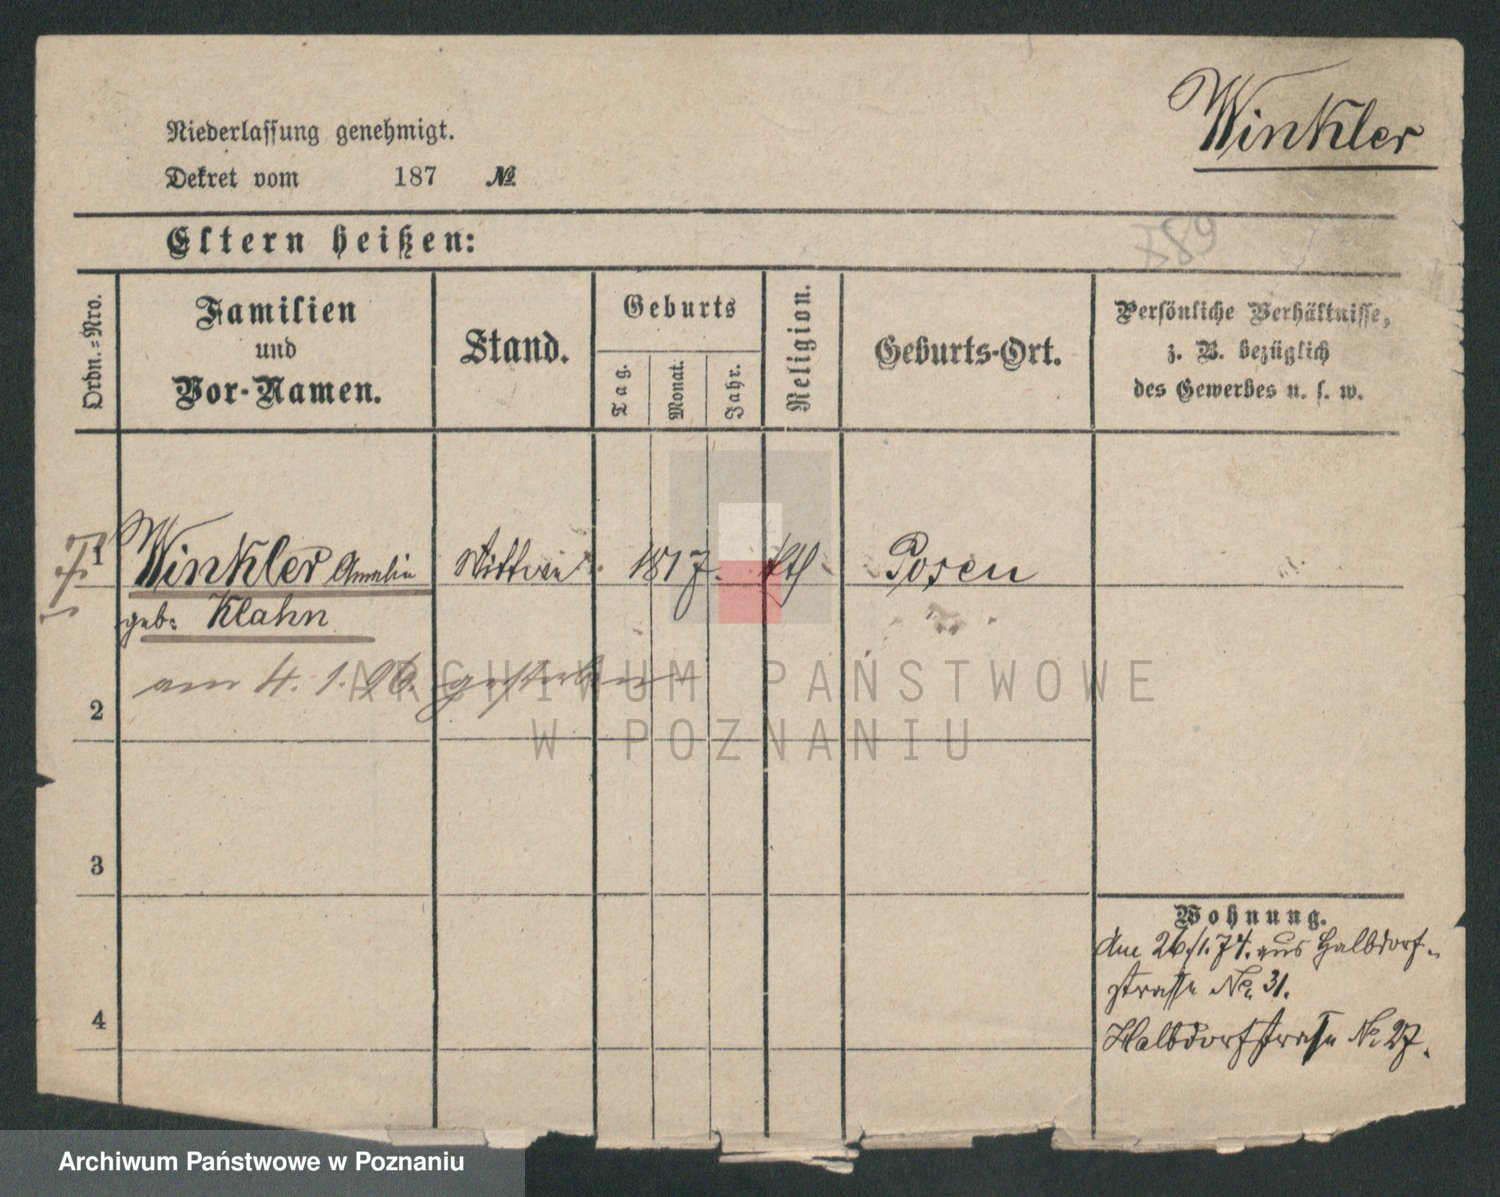 Winkler
Niederlassung genehmigt.
Dekret vom 187 №
789
Eltern heißen:
Ordn.=Nro.
Familien
und
Vor-Namen.
Stand.
Geburts
Tag.
Monat.
Jahr.
Religion.
Geburts-Ort.
Persönliche Verhältnisse,
z. B. bezüglich
des Gewerbes u. s. w.
1 Winkler Amalie Wittwe 1817. kth Posen
geb: Klahn
am 4.1.96. gestorben
2
3
4
Wohnung.
Am 26/1.74. aus Halbdorf-
strasse No. 31.
Halbdorfstrasse No 27.
ARCHIWUM PAŃSTWOWE
W POZNANIU
Archiwum Państwowe w Poznaniu